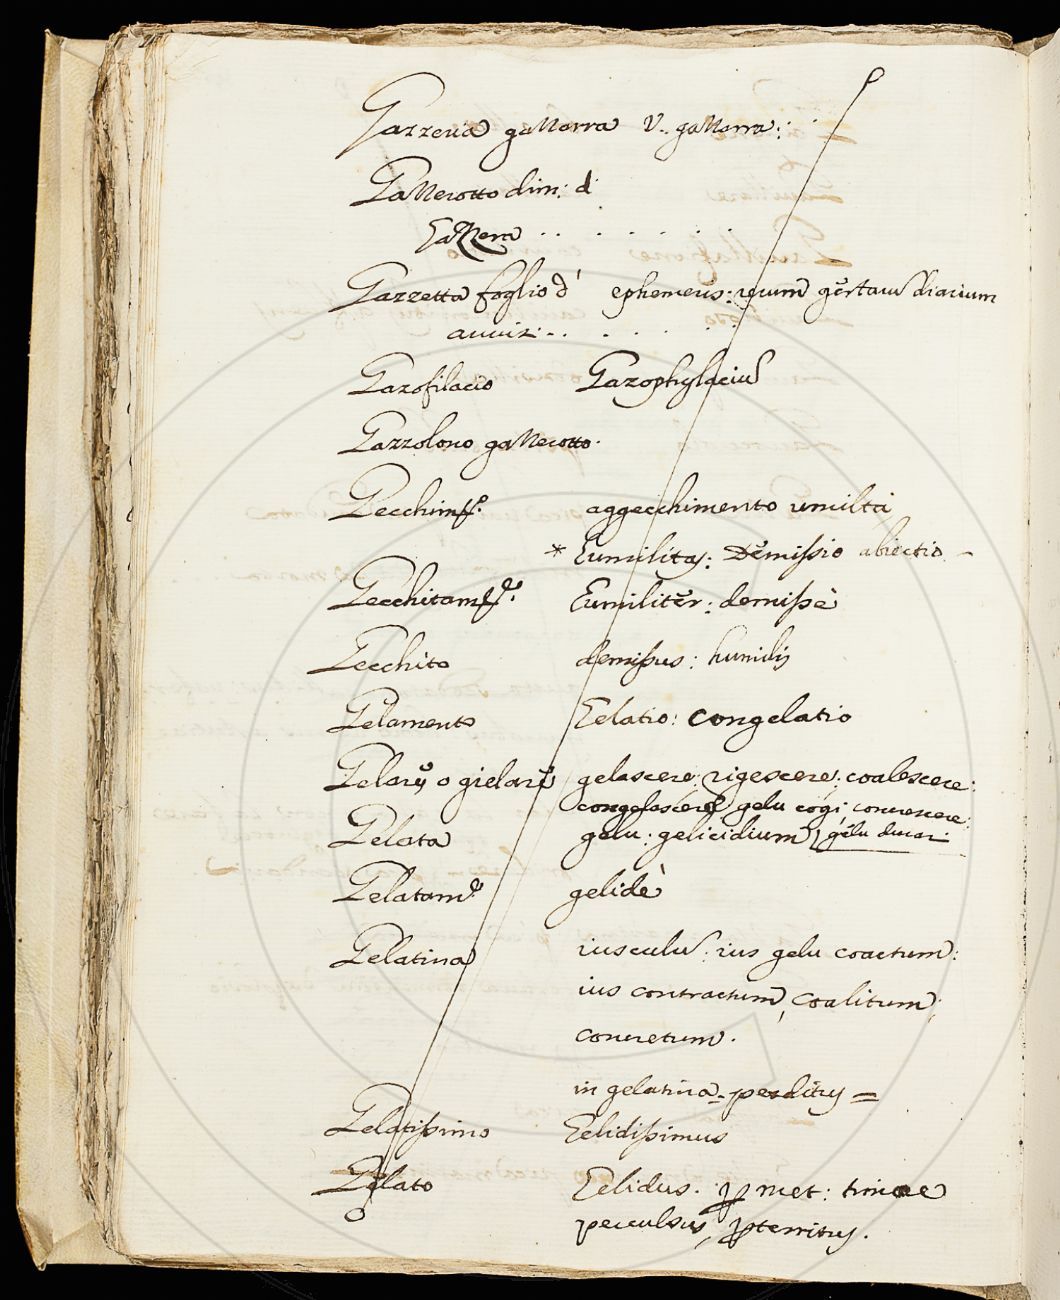 Gazzeria gazzarra V. gazzarra:
Gazzerotto dim: d'
Gazzera
Gazzetta foglio d' ephemeris: rerum diarium
avvisi
Gazofilacio Gazophylaciū
Gazzolono gazzerotto.
Gecchim.to aggecchimento umiltà
* Humilitas: Demissio abiectio
Gecchitam.te Humilitèr: demissè
Gecchito demissus: humilis
Gelamento Gelatio: congelatio
o gielare gelascere: rigescere: coalescere:
congelascere gelu cogi; concrescere:
Gelata gelu: gelicidium gelu durari
Gelatam.te gelidè
Gelatina iusculū: ius gelu coactum:
ius contractum, coalitum,
concretum.
in gelatina perditus =
Gelatissimo Gelidissimus
Gelato Gelidus. ꝑ met: timore
perculsus, ꝑterritus.